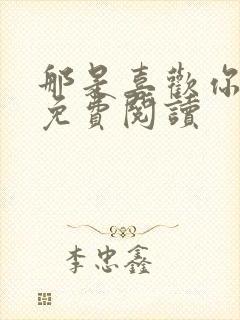 那是喜歡你
免費閱讀
李忠鑫